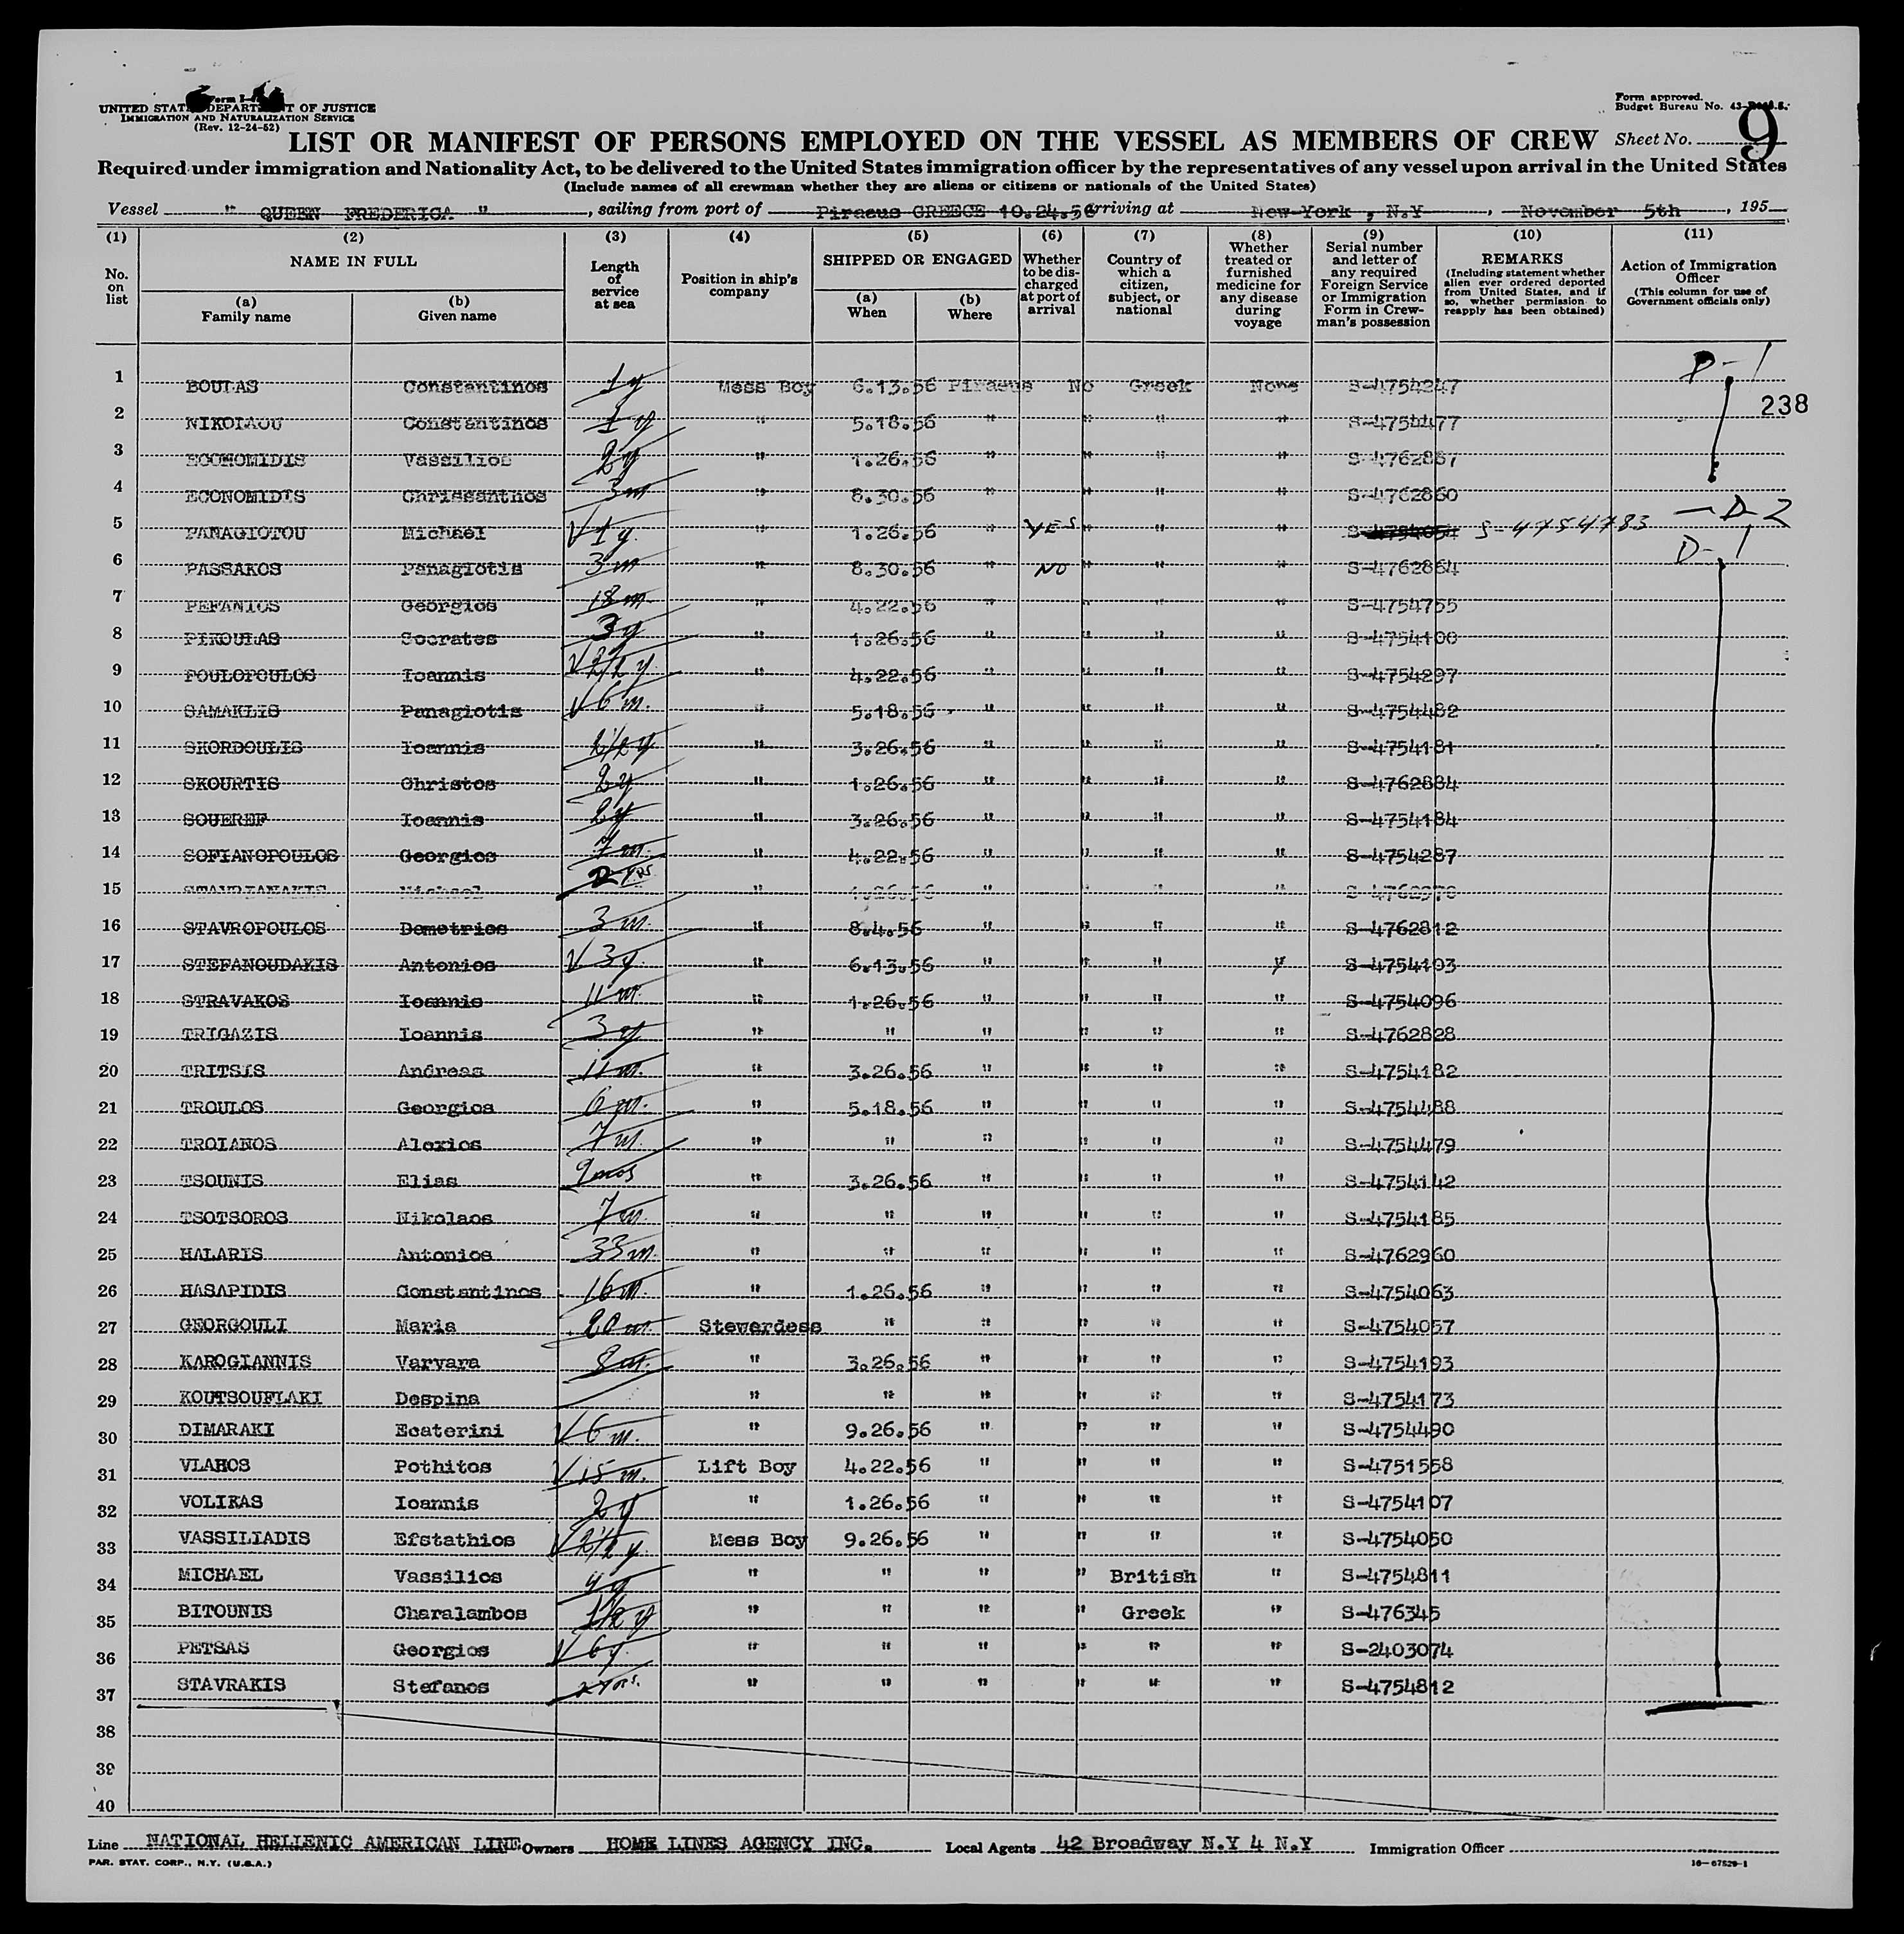 Form I-4
UNITED STATES DEPARTMENT OF JUSTICE
IMMIGRATION AND NATURALIZATION SERVICE
(Rev. 12-24-52)
Form approved.
Budget Bureau No. 43-
LIST OR MANIFEST OF PERSONS EMPLOYED ON THE VESSEL AS MEMBERS OF CREW Sheet No. 9
Required under immigration and Nationality Act, to be delivered to the United States immigration officer by the representatives of any vessel upon arrival in the United States
(Include names of all crewman whether they are aliens or citizens or nationals of the United States)
Vessel " QUEEN FREDERICA ", sailing from port of Piraeus GREECE 10.24.56 arriving at New-York , N.Y , November 5th , 195
(1) (2) (3) (4) (5) (6) (7) (8) (9) (10) (11)
No. on list
NAME IN FULL
(a) Family name
(b) Given name
Length of service at sea
Position in ship's company
SHIPPED OR ENGAGED
(a) When
(b) Where
Whether to be discharged at port of arrival
Country of which a citizen, subject, or national
Whether treated or furnished medicine for any disease during voyage
Serial number and letter of any required Foreign Service or Immigration Form in Crewman's possession
REMARKS
(Including statement whether alien ever ordered deported from United States, and if so, whether permission to reapply has been obtained)
Action of Immigration Officer
(This column for use of Government officials only)
1 BOULAS Constantinos 1y Mess Boy 6.13.56 Piraeus No Greek None S-4754247 D-1
238
2 NIKOLAOU Constantinos 1y " 5.18.56 " " " " S-4754477
3 ECONOMIDIS Vassilios 2y " 1.26.56 " " " " S-4762887
4 ECONOMIDIS Chrissanthos 3m " 8.30.56 " " " " S-4762860
5 PANAGIOTOU Michael V 1y. " 1.26.56 " YES " " " S-4754054 S-4754783 - D-2
6 PASSAKOS Panagiotis 3m " 8.30.56 " NO " " " S-4762864 D-1
7 PEFANIOS Georgios 18m. " 4.22.56 " " " " S-4754755
8 PIKOULAS Socrates 3y " 1.26.56 " " " " S-4754100
9 POULOPOULOS Ioannis V 2 1/2 y. " 4.22.56 " " " " S-4754297
10 SAMAKLIS Panagiotis V 6m. " 5.18.56 " " " " S-4754482
11 SKORDOULIS Ioannis 2 1/2 y " 3.26.56 " " " " S-4754181
12 SKOURTIS Christos 2y " 1.26.56 " " " " S-4762884
13 SOUEREF Ioannis 2y " 3.26.56 " " " " S-4754184
14 SOFIANOPOULOS Georgios 7m. " 4.22.56 " " " " S-4754287
15 STAVRIANAKIS Michael 2 yrs " 1.26.56 " " " " S-4762970
16 STAVROPOULOS Demetrios 3m. " 8.4.56 " " " " S-4762812
17 STEFANOUDAKIS Antonios V 3y. " 6.13.56 " " " " S-4754103
18 STRAVAKOS Ioannis 11m. " 1.26.56 " " " " S-4754096
19 TRIGAZIS Ioannis 3y " " " " " " S-4762828
20 TRITSIS Andreas 11m. " 3.26.56 " " " " S-4754182
21 TROULOS Georgios 6m. " 5.18.56 " " " " S-4754488
22 TROIANOS Alexios 7m. " " " " " " S-4754479
23 TSOUNIS Elias 9mos " 3.26.56 " " " " S-4754142
24 TSOTSOROS Nikolaos 7m. " " " " " " S-4754185
25 HALARIS Antonios 33m. " " " " " " S-4762960
26 HASAPIDIS Constantinos 16m. " 1.26.56 " " " " S-4754063
27 GEORGOULI Maria 20m. Stewardess " " " " " S-4754057
28 KAROGIANNIS Varvara 8m. " 3.26.56 " " " " S-4754193
29 KOUTSOUFLAKI Despina " " " " " " S-4754173
30 DIMARAKI Ecaterini V 6m. " 9.26.56 " " " " S-4754490
31 VLAHOS Pothitos V 15m. Lift Boy 4.22.56 " " " " S-4751558
32 VOLIKAS Ioannis 2y " 1.26.56 " " " " S-4754107
33 VASSILIADIS Efstathios V 2 1/2 y. Mess Boy 9.26.56 " " " " S-4754050
34 MICHAEL Vassilios 4y " " " " British " S-4754811
35 BITOUNIS Charalambos 1 1/2 y " " " " Greek " S-476345
36 PETSAS Georgios V 6y. " " " " " " S-2403074
37 STAVRAKIS Stefanos 2 yrs. " " " " " " S-4754812
38
39
40
Line NATIONAL HELLENIC AMERICAN LINE Owners HOME LINES AGENCY INC. Local Agents 42 Broadway N.Y 4 N.Y Immigration Officer
PAR. STAT. CORP., N.Y. (U.S.A.)
16-67529-1